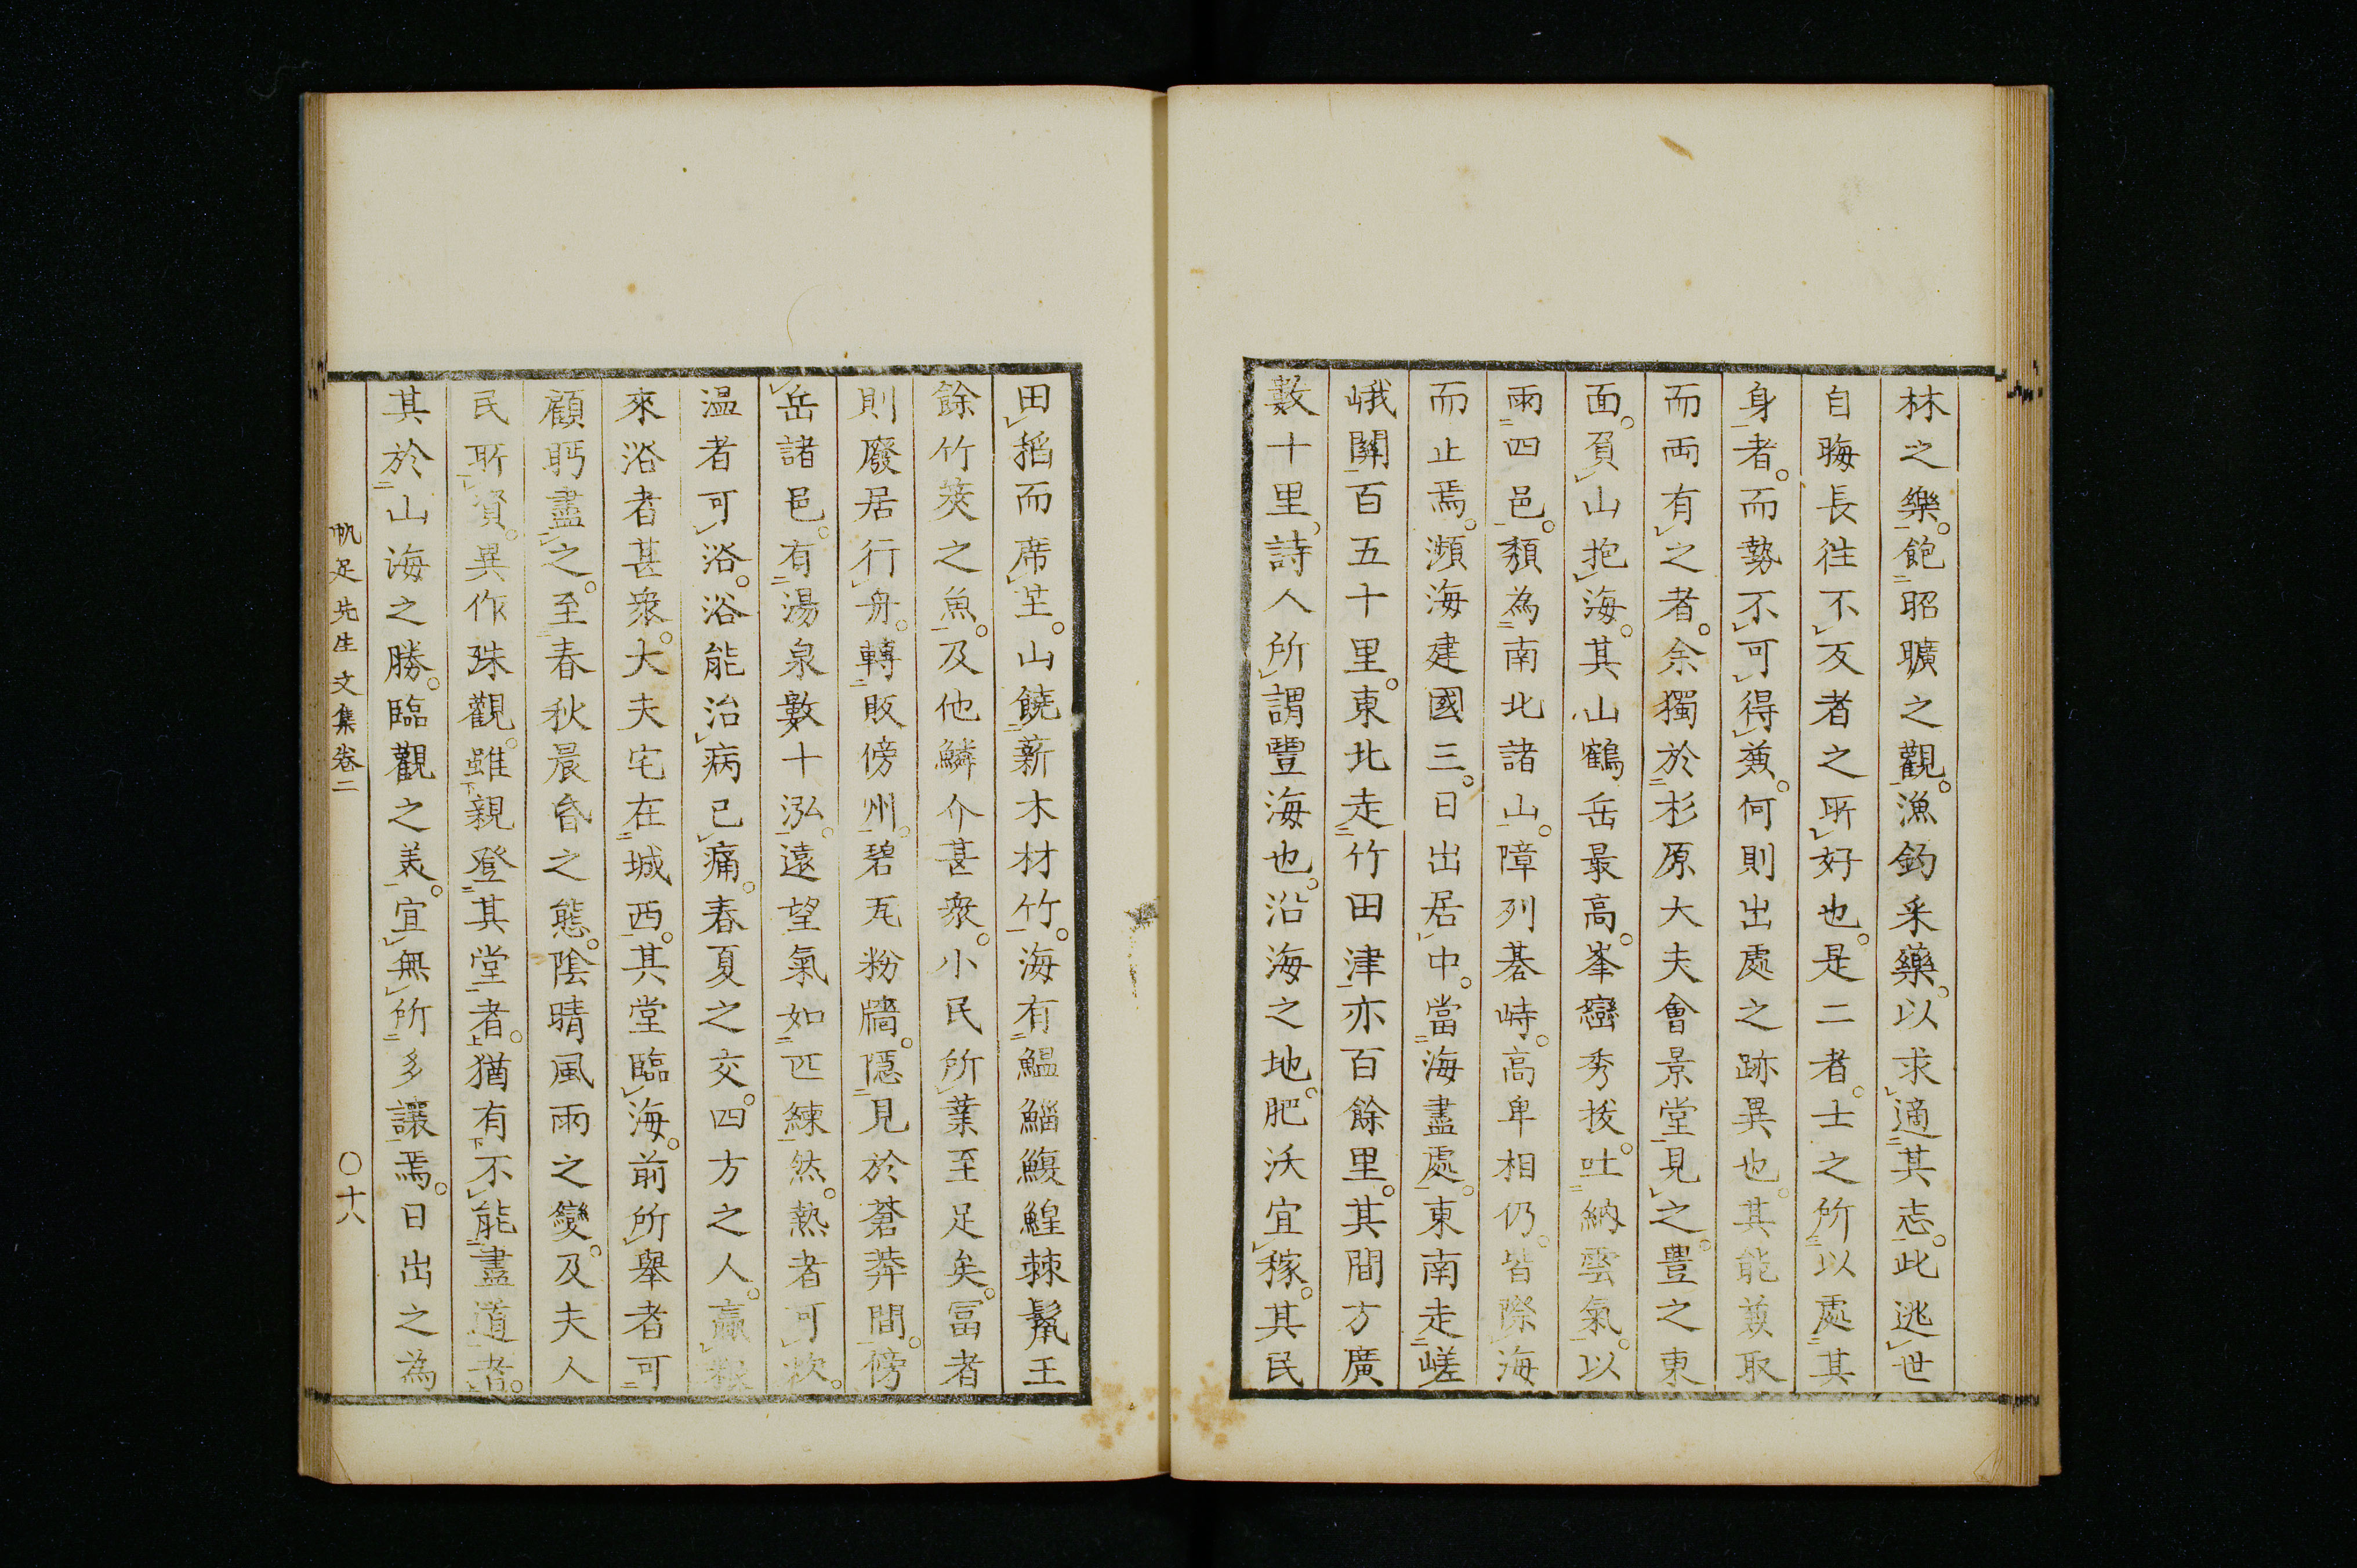 林之樂。飽昭曠之觀。漁釣采藥。以求適其志。此逃世
自晦長往不反者之所好也。是二者。士之所以處其
身者。而勢不可得兼。何則出處之跡異也。其能兼取
而兩有之者。余獨於杉原大夫會景堂見之。豐之東
面。負山抱海。其山鶴岳最高。峯巒秀拔。吐納雲氣。以
雨四邑。頫為南北諸山。障列碁峙。高卑相仍。皆際海
而止焉。瀕海建國三。日出居中。當海盡處。東南走嵯
峨關百五十里。東北走竹田津亦百餘里。其間方廣
數十里。詩人所謂豐海也。沿海之地。肥沃宜稼。其民
田稻而席芏。山饒薪木材竹。海有鰛鯔鰒鰉棘鬣王
餘竹筴之魚。及他鱗介甚衆。小民所業至足矣。冨者
則廢居行舟。轉販傍州。碧瓦粉牆。隱見於蒼莽間。傍
岳諸邑。有湯泉數十泓。遠望氣如匹練然。熱者可炊。
温者可浴。浴能治病已痛。春夏之交。四方之人。贏糧
來浴者甚衆。大夫宅在城西。其堂臨海。前所舉者可
顧眄盡之。至春秋晨昏之態。陰晴風雨之變。及夫人
民所資。異作殊觀。雖親登其堂者。猶有不能盡道者。
其於山海之勝。臨觀之美。宜無所多讓焉。日出之為
帆足先生文集卷二
〇十八